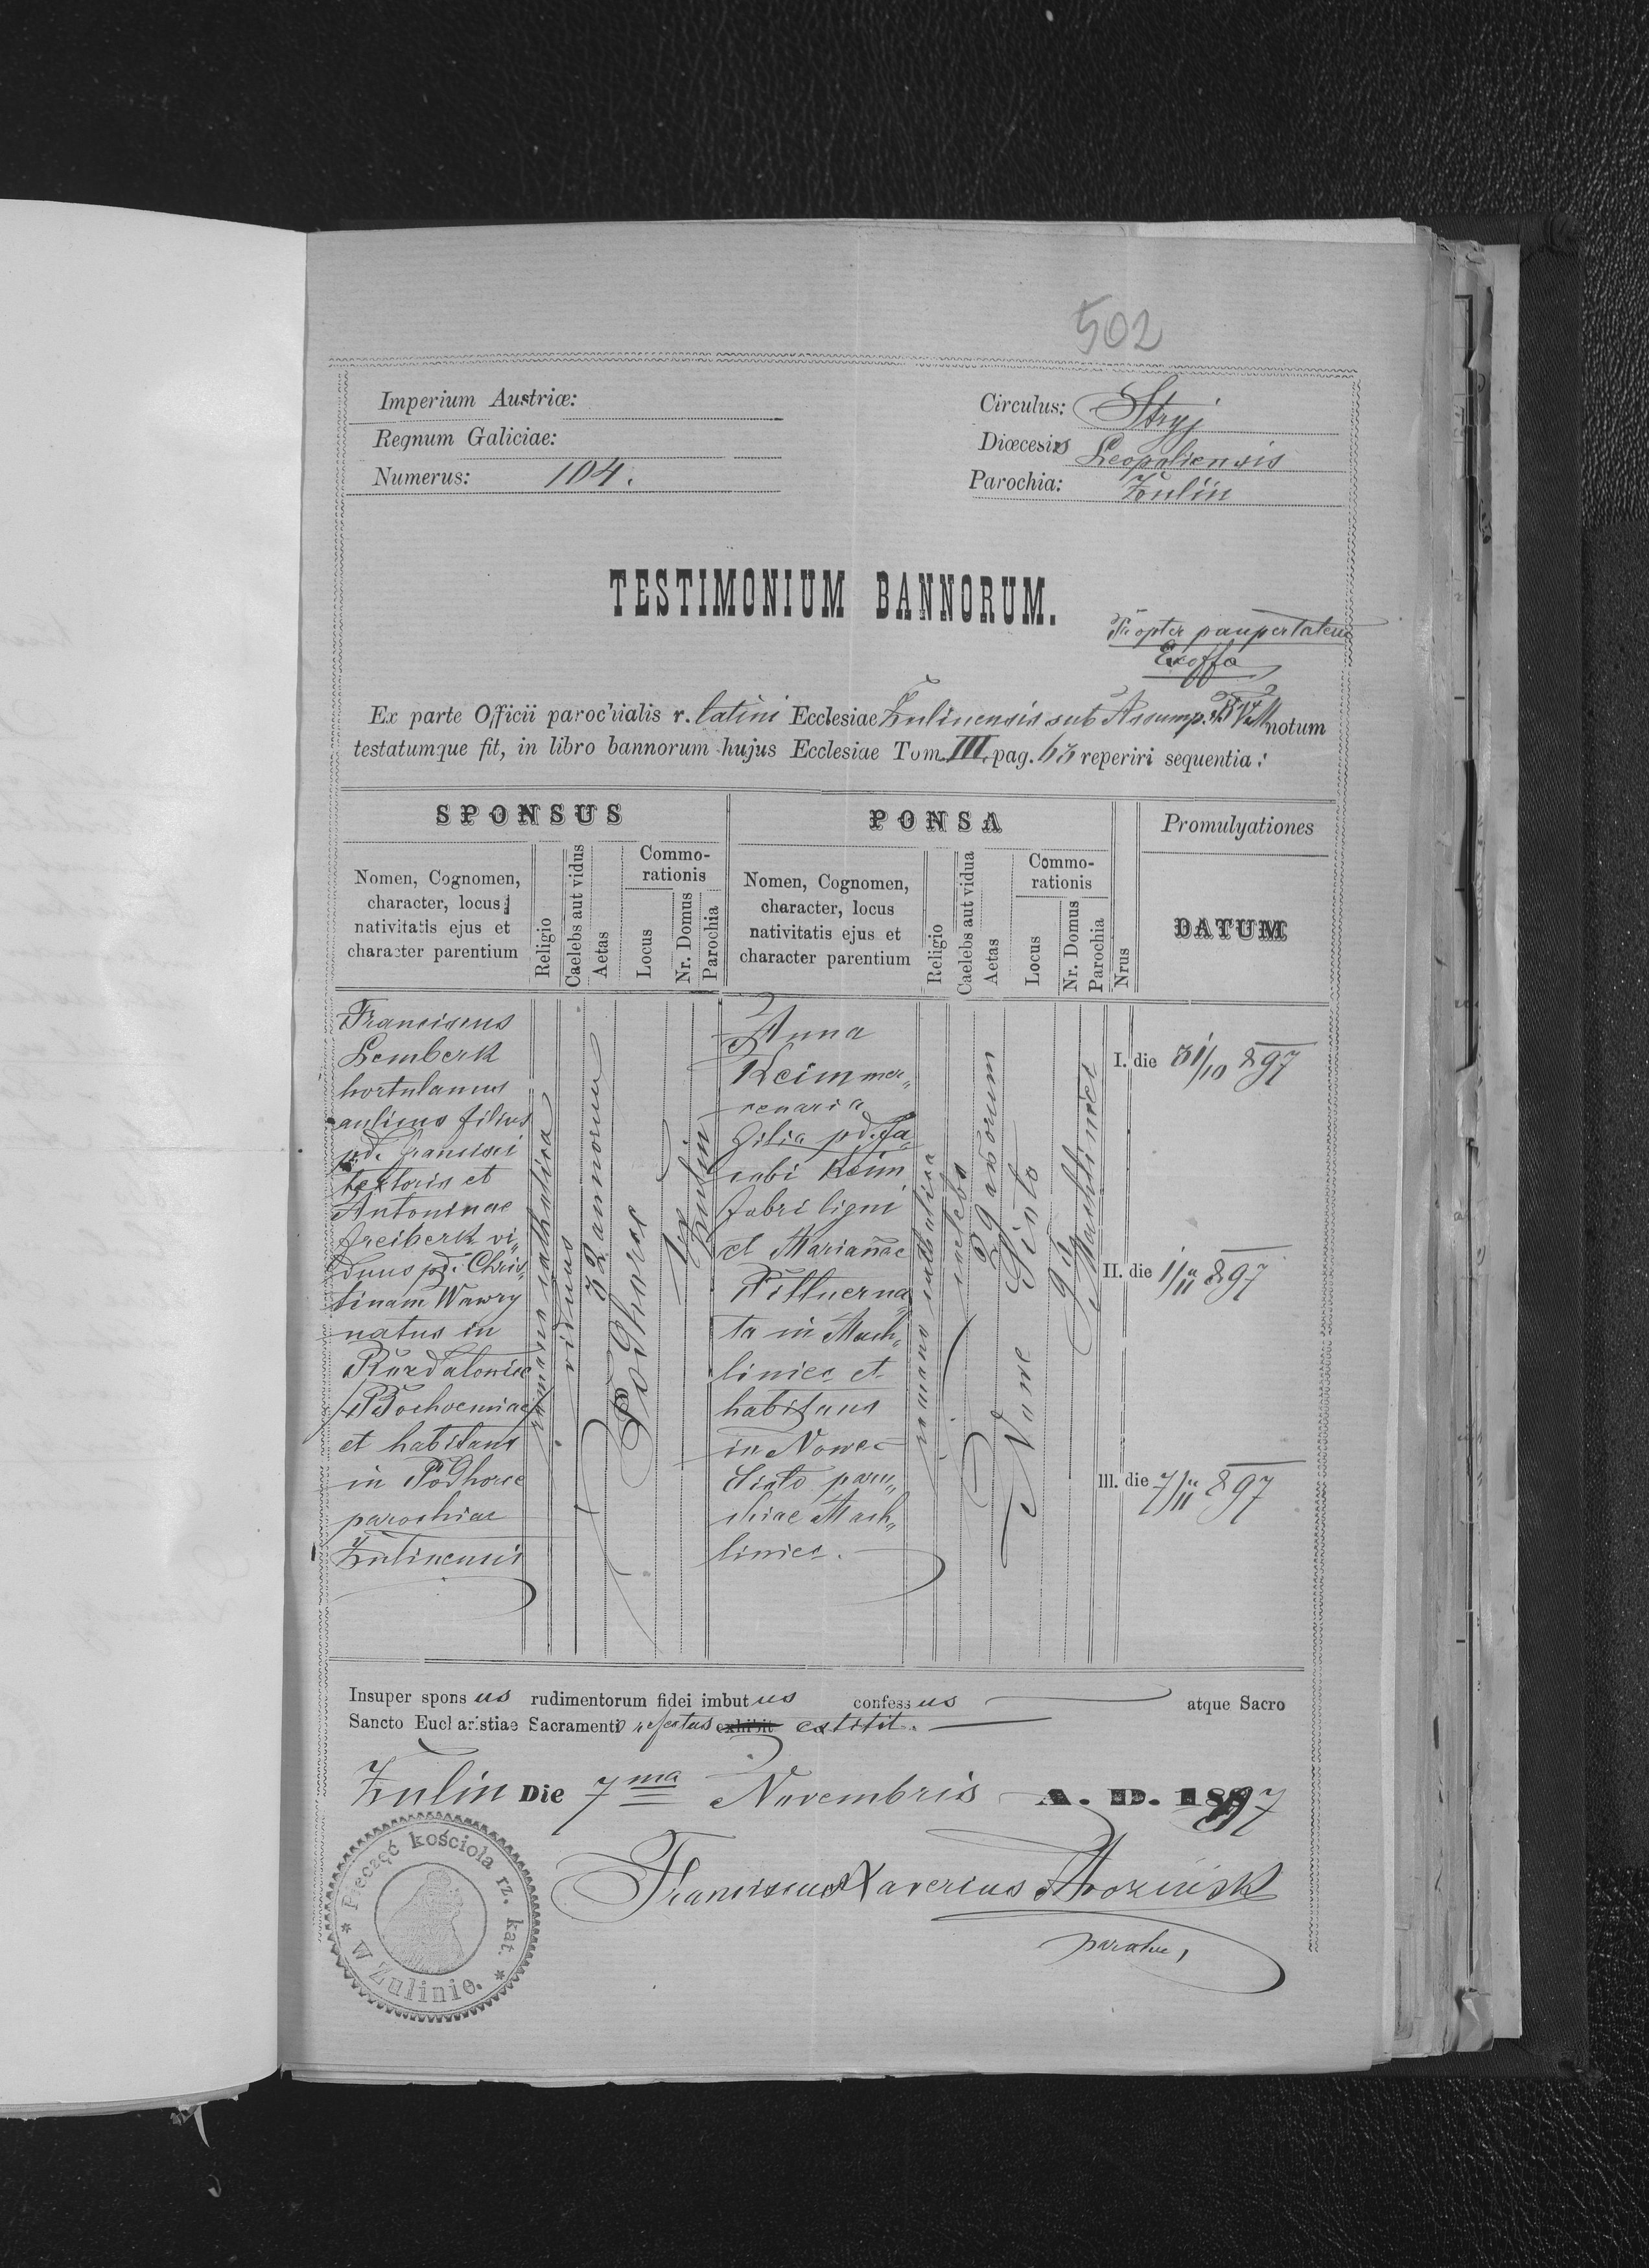 502
Imperium Austriæ:
Regnum Galiciae:
Numerus: 104.
Circulus: Stryj
Diœcesis Leopoliensis
Parochia: Żulin
TESTIMONIUM BANNORUM.
Propter paupertatem
Exoffo
Ex parte Officii parochialis r. latini Ecclesiae Żulinensis sub Assump. BVM notum
testatumque fit, in libro bannorum hujus Ecclesiae Tom. III. pag. 63 reperiri sequentia:
SPONSUS
PONSA
Promulyationes
Nomen, Cognomen,
character, locus
nativitatis ejus et
character parentium
Religio
Caelebs aut vidus
Aetas
Commo-
rationis
Locus
Nr. Domus
Parochia
Nomen, Cognomen,
character, locus
nativitatis ejus et
character parentium
Religio
Caelebs aut vidua
Aetas
Commo-
rationis
Locus
Nr. Domus
Parochia
Nrus
DATUM
Franciscus
Lemberk
hortulanus
aulicus filius
pd. Francisci
textoris et
Antoninae
Freiberk vi„
duus pd. Chris„
tinam Wawry
natus in
Rozdalowice
/Bochoemiae/
et habitans
in Podhorce
parochiae
Żulinensis
romano catholica
viduus
32 annorum
Podhorce
Żulin
Anna
Keim mer„
cenaria
filia pd. Ja„
cobi Keim
fabri ligni
et Mariannae
Fittner na„
ta in Mach„
liniec et
habitans
in Nowe
Sioto paro„
chiae Mach„
liniec.
romano catholica
caelebs
29 annorum
Nowe Sioto
99
Machliniec
I. die 31/10 897
II. die 1/11 897
III. die 7/11 897
Insuper spons us rudimentorum fidei imbut us confess us atque Sacro
Sancto Eucharistiae Sacramento refectus exhibit extitit.
Żulin Die 7ma Novembris A. D. 1897
Franciscus Xaverius
parochus
* Pieczęć kościoła rz. kat. *
w Żulinie.